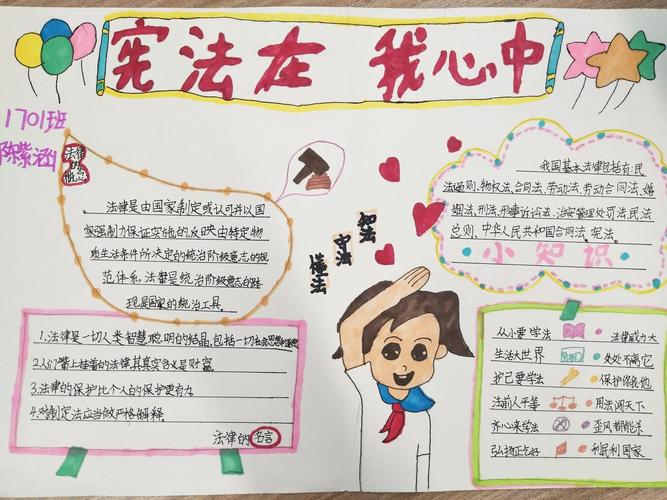 宪法在 我心中
1701班
陈紫涵
法律
的
概念
法律是由国家制定或认可并以国
家强制力保证实施的反映由特定物
质生活条件所决定的统治阶级意志的规
范体系.法律是统治阶级意志的体
现是国家的统治工具.
知法
守法
懂法
我国基本法律包括有:民
法通则、物权法、合同法、劳动法、劳动合同法、婚
姻法、刑法、刑事诉讼法、治安管理处罚法、民法
总则、中华人民共和国合同法、宪法.
小知识
1.法律是一切人类智慧聪明的结晶,包括一切社会思想和道德
2.人们嘴上挂着的法律,其真实含义是财富.
3.法律的保护比个人的保护更有力
4.对制定法应当做严格解释.
法律的名言
从小要学法 法律威力大
生活大世界 处处不离它
护己要学法 保护你我他
法前人平等 用法闯天下
齐心来学法 歪风都能杀
弘扬正气好 利民利国家